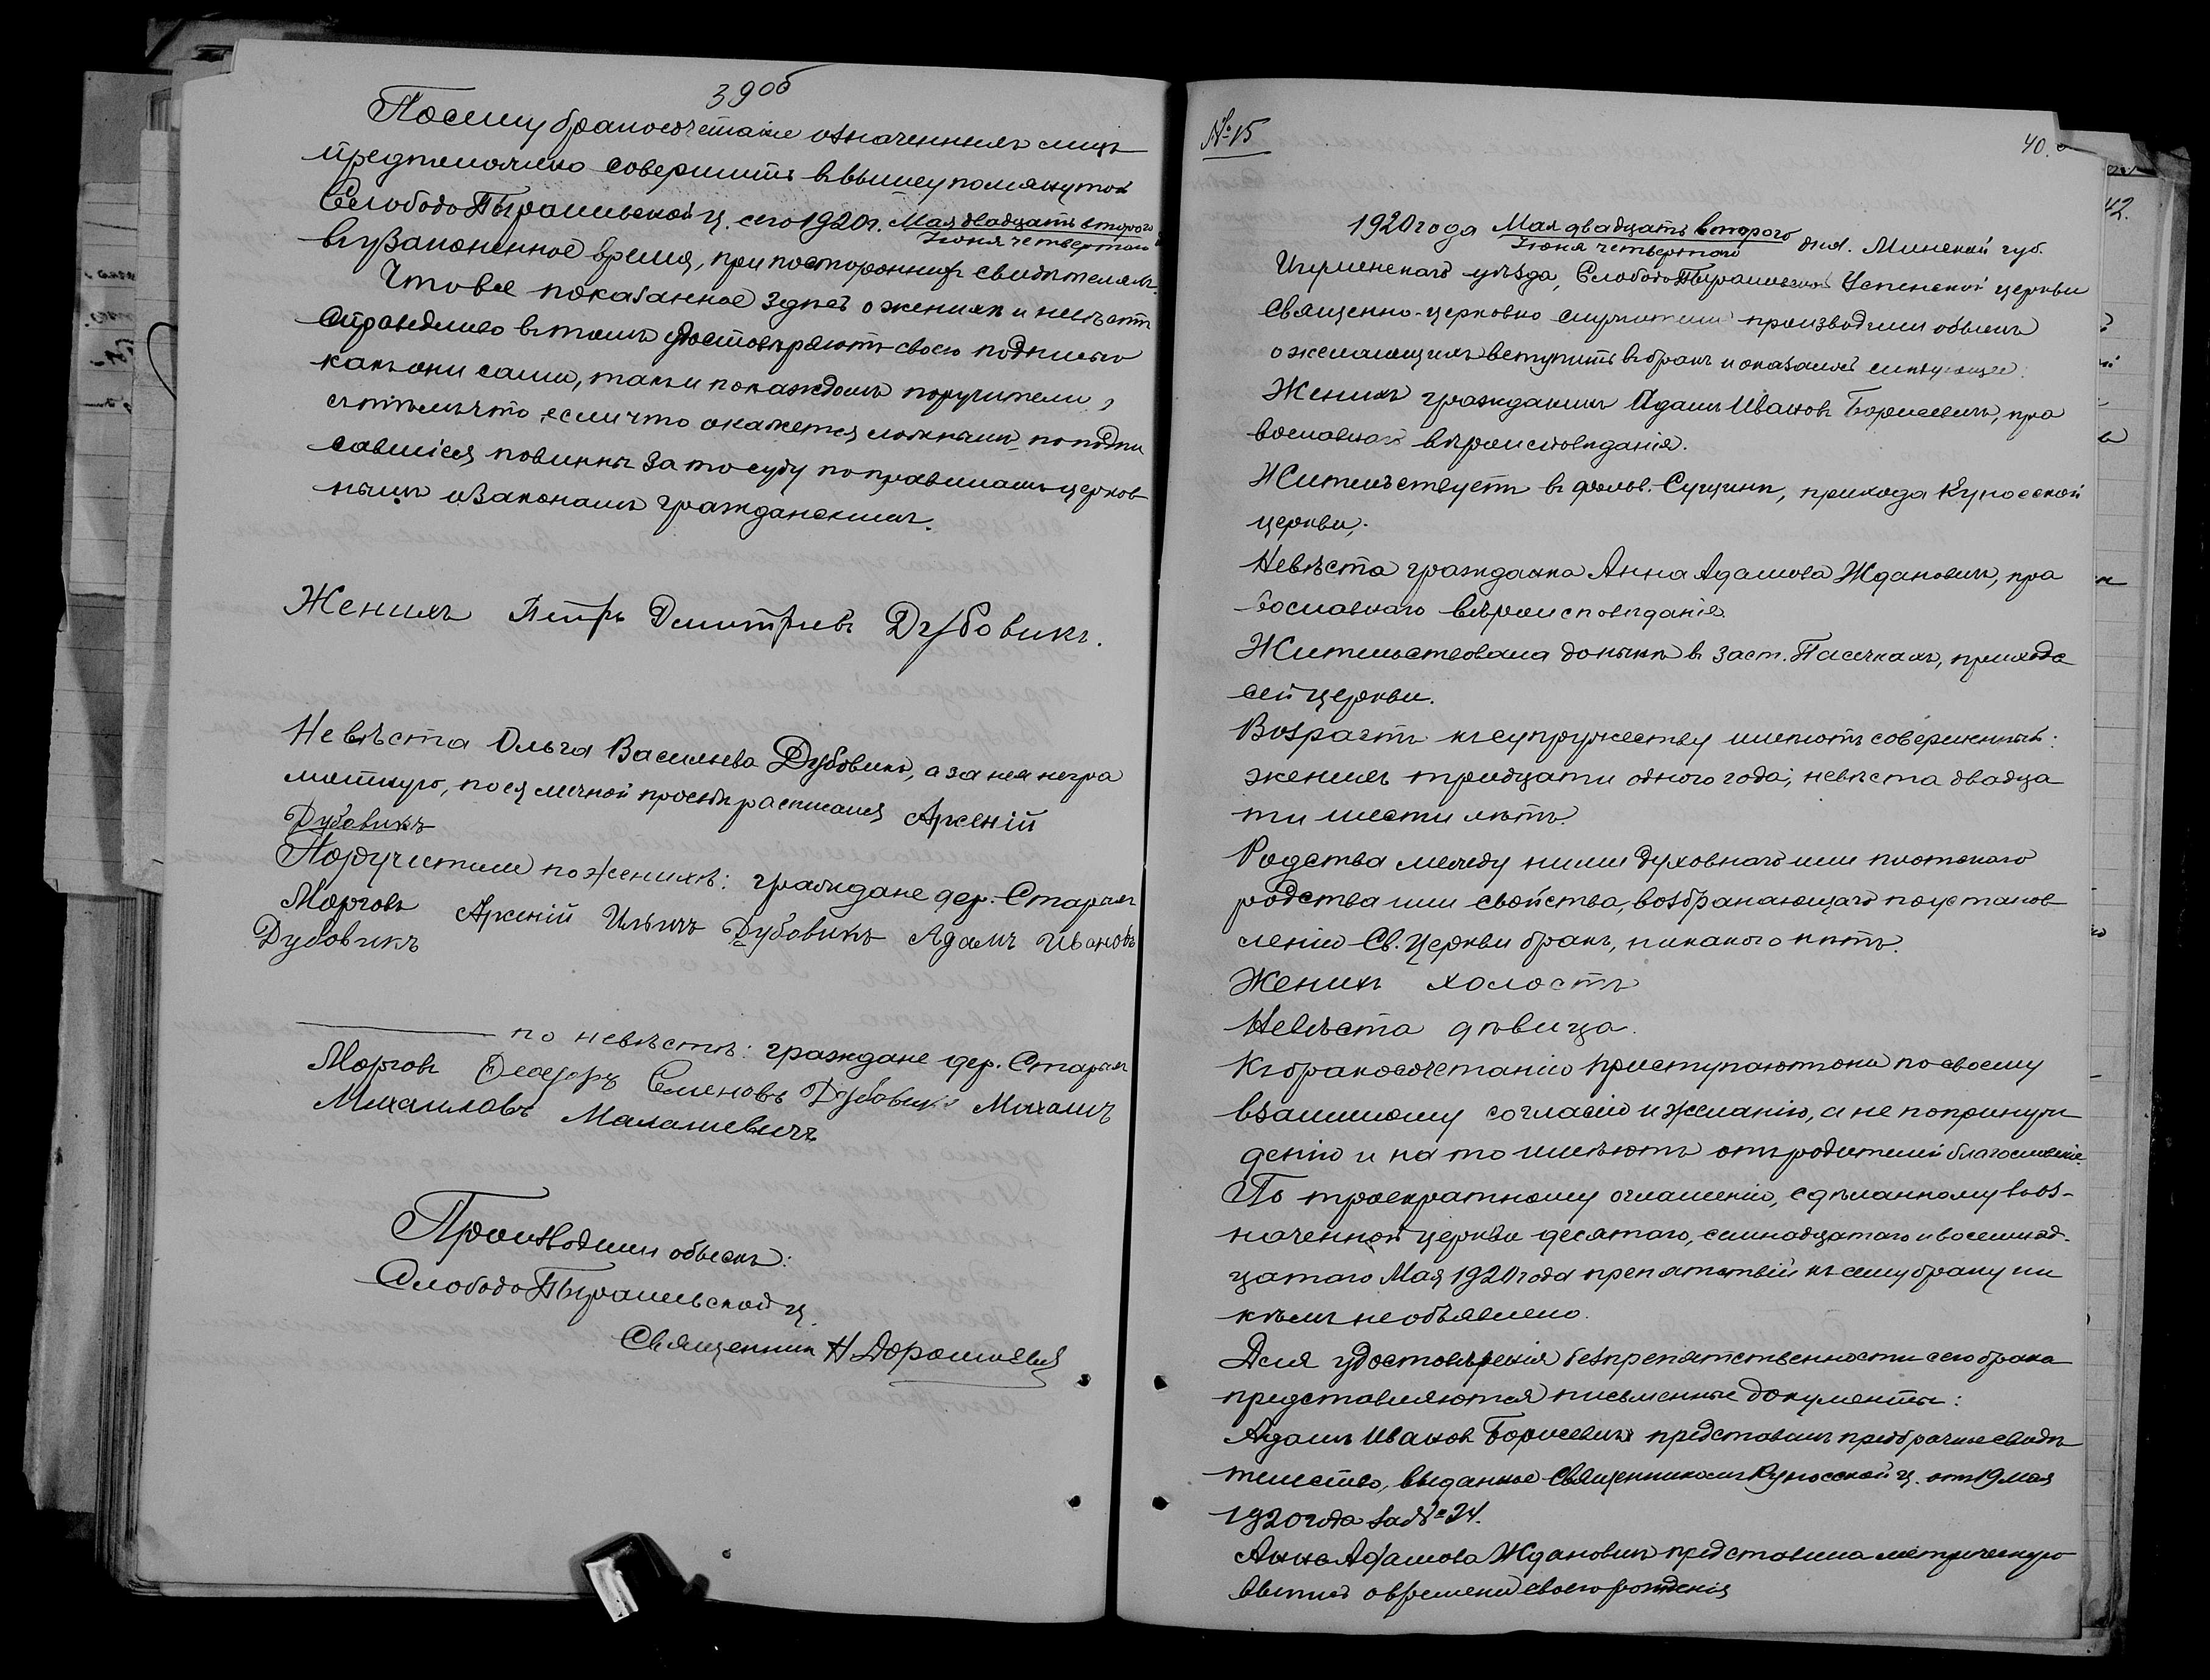 39об
Посему бракосочетаніе означенныхъ лицъ
предположено совершить въ вышеупомянутой
СлободоПырашевской ц. сего 1920 г. Мая двадцать второго
Іюня четвертаго
въ узаконенное время, при постороннихъ свидѣтеляхъ.
Что все показанное здѣсь о женихѣ и невѣстѣ
справедливо въ томъ удостовѣряютъ своею подписью
какъ они сами, такъ и по каждомъ поручители,
съ тѣмъ что, если что окажется ложнымъ, то подпи
савшіеся повинны за то суду по правиламъ церков
нымъ и законамъ гражданскимъ.
Женихъ Петръ Дмитріевъ Дубовикъ.
Невѣста Ольга Васильева Дубовикъ, а за нея негра
мотную, по ея личной просьбѣ расписался Арсеній
Дубовикъ
Поручители по женихѣ: граждане дер. Старыхъ
Морговъ Арсеній Ильичъ Дубовикъ Адамъ Ивановъ
Дубовикъ
по невѣстѣ: граждане дер. Старыхъ
Морговъ Ѳеодоръ Семеновъ Дубовикъ Михаилъ
Михайловъ Малашевичъ
Производили обыскъ:
СлободоПырашевской ц.
Священник Н Дорошевич
№ 15
40.
1920 года Мая двадцать второго дня. Минской губ.
Іюня четвертаго
Игуменскаго уѣзда, СлободоПырашевской Успенской церкви
священно-церковно служители производили обыскъ
о желающихъ вступить въ бракъ и оказалось слѣдующее.
Женихъ гражданинъ Адамъ Ивановъ Борисевичъ, пра
вославнаго вѣроисповѣданія.
Жительствуетъ въ фольв. Сущинѣ, прихода Куносской
церкви.
Невѣста гражданка Анна Адамова Ждановичъ, пра
вославнаго вѣроисповѣданія.
Жительствовала донынѣ въ заст. Пасѣкахъ, прихода
сей церкви.
Возрастъ къ супружеству имѣютъ совершенный:
женихъ тридцати одного года; невѣста двадца
ти шести лѣтъ.
Родства между ними духовнаго или плотскаго
родства или свойства, возбраняющаго по установ
ленію Св. Церкви бракъ, никакого нѣтъ.
Женихъ холостъ
Невѣста дѣвица.
Къ бракосочетанію приступаютъ они по своему
взаимному согласію и желанію, а не по принуж
денію и на то имѣютъ отъ родителей благословеніе.
По троекратному оглашенію, сдѣланному въ оз-
наченной церкви десятаго, семнадцатаго и восемнад-
цатаго Мая 1920 года препятствій къ сему браку ни
кѣмъ не объявлено.
Для удостовѣренія безпрепятственности сего брака
представляются письменные документы:
Адамъ Ивановъ Борисевичъ представилъ предбрачное свидѣ
тельство, выданное Священникомъ Куносской ц. отъ 19 мая
1920 года за № 24.
Анна Адамова Ждановичъ представила метрическую
выпись о времени своего рожденія